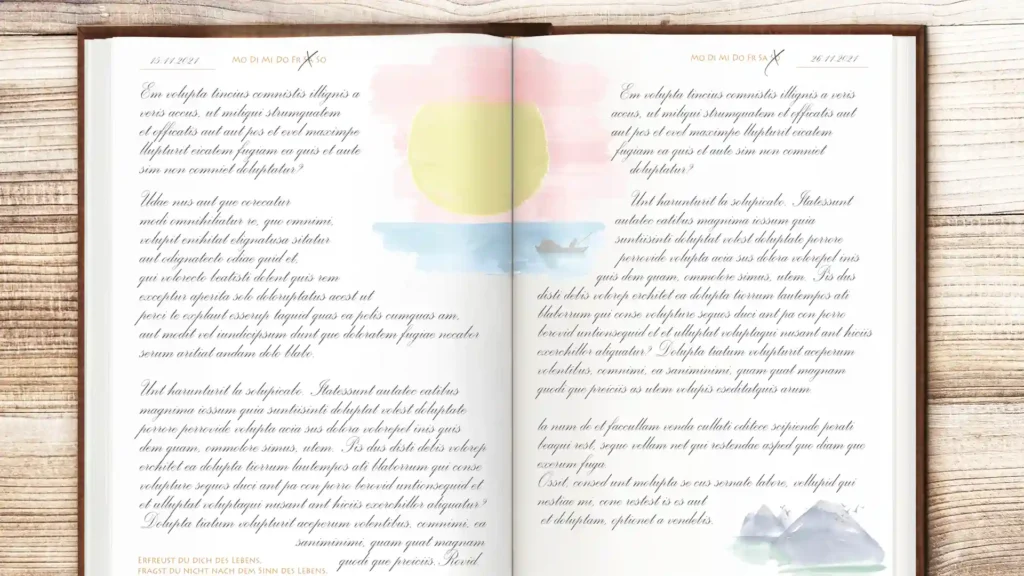 15.11.2021
MO DI MI DO FR SA SO
Em volupta tincius comnistis illignis a
veris accus, ut miliqui strumquatem
et officatis aut aut pos et evel maximpe
llupturit eicatem fugiam ea quis et aute
sim non comniet doluptatur?
Udae nus aut que corecatur
modi omnihillatur re, quo omnimi,
volupit enihitat elignatusa sitatur
aut edignatecto odiae quid et,
qui volorecto beatisti dolent quis rem
exceptur aperita solo doloruptatus acest ut
perci te explaut esserup taquid quas ea pelis cumquas am,
aut modit vel iundicipsum dunt que doloratem fugiae necabor
serum aritiat andam dolo blabo.
Unt harunturit la solupicabo. Itatessunt autatec eatibus
magnima iossum quia suntusinti doluptat volest doluptate
porrore porrovide volupta acia sus dolora volorepel inis quis
dem quam, ommolore simus, utem. Pis dus disti debis volorep
erchitet ea dolupta tiorrum lautempos ati blaborrum qui conse
volupture sequos duci ant pa con porro berovid untionsequid et
et ulluptat voluptaqui nusant ant hiciis exerchiller aliquatur?
Dolupta tiatum volupturit aceperum volentibus, comnimi, ea
saniminimi, quam quat magnam
quodi que preiciis. Rovid.
ERFREUST DU DICH DES LEBENS,
FRAGST DU NICHT NACH DEM SINN DES LEBENS.
MO DI MI DO FR SA SO
26.11.2021
Em volupta tincius comnistis illignis a veris
accus, ut miliqui strumquatem et officatis aut
aut pos et evel maximpe llupturit eicatem
fugiam ea quis et aute sim non comniet
doluptatur?
Unt harunturit la solupicabo. Itatessunt
autatec eatibus magnima iossum quia
suntusinti doluptat volest doluptate porrore
porrovide volupta acia sus dolora volorepel inis
quis dem quam, ommolore simus, utem. Pis dus
disti debis volorep erchitet ea dolupta tiorrum lautempos ati
blaborrum qui conse volupture sequos duci ant pa con porro
berovid untionsequid et et ulluptat voluptaqui nusant ant hiciis
exerchiller aliquatur? Dolupta tiatum volupturit aceperum
volentibus, comnimi, ea saniminimi, quam quat magnam
quodi que preiciis as utem volupis eseditatquis arum
la num de et faccullam venda cullati oditece scipiende perati
beaqui rest, seque vellam net qui restendae asped quo diam que
exerum fuga.
Osset, consed unt molupta se eus sernate labore, vellupid qui
nestiae mi, cone restest is es aut
et doluptam, optionet a vendebis.